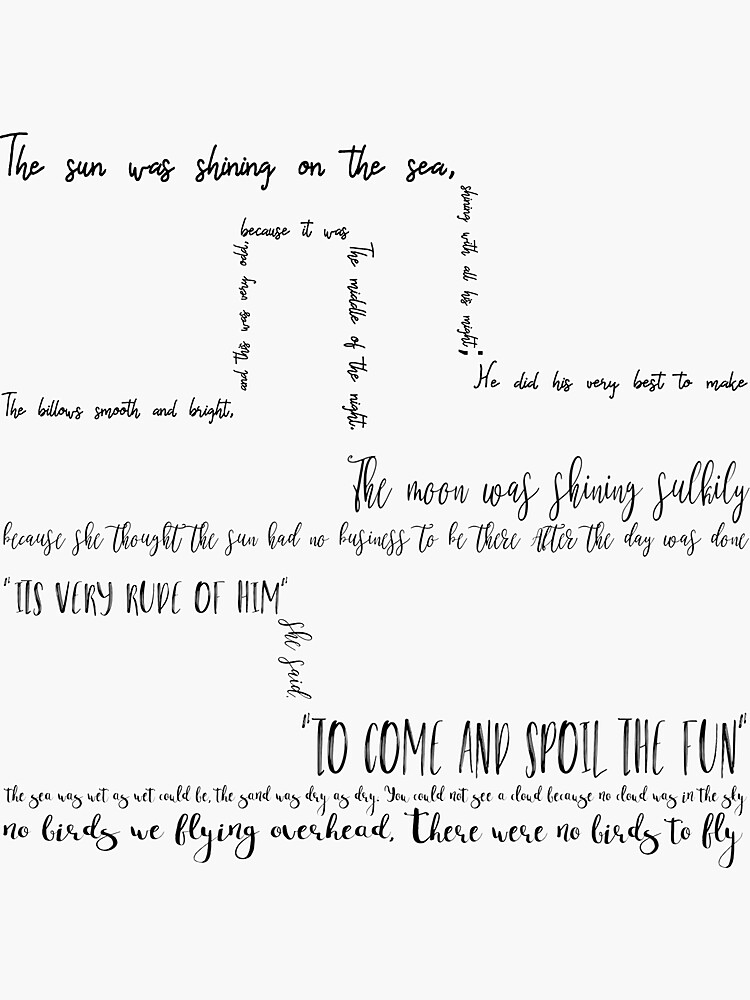 The sun was shining on the sea,
shining with all his might;
He did his very best to make
The billows smooth and bright,
and this was very odd,
because it was
The middle of the night.
The moon was shining sulkily
because she thought the sun had no business to be there After the day was done
"ITS VERY RUDE OF HIM"
she said.
"TO COME AND SPOIL THE FUN"
the sea was wet as wet could be, the sand was dry as dry. You could not see a cloud because no cloud was in the sky
no birds we flying overhead, There were no birds to fly